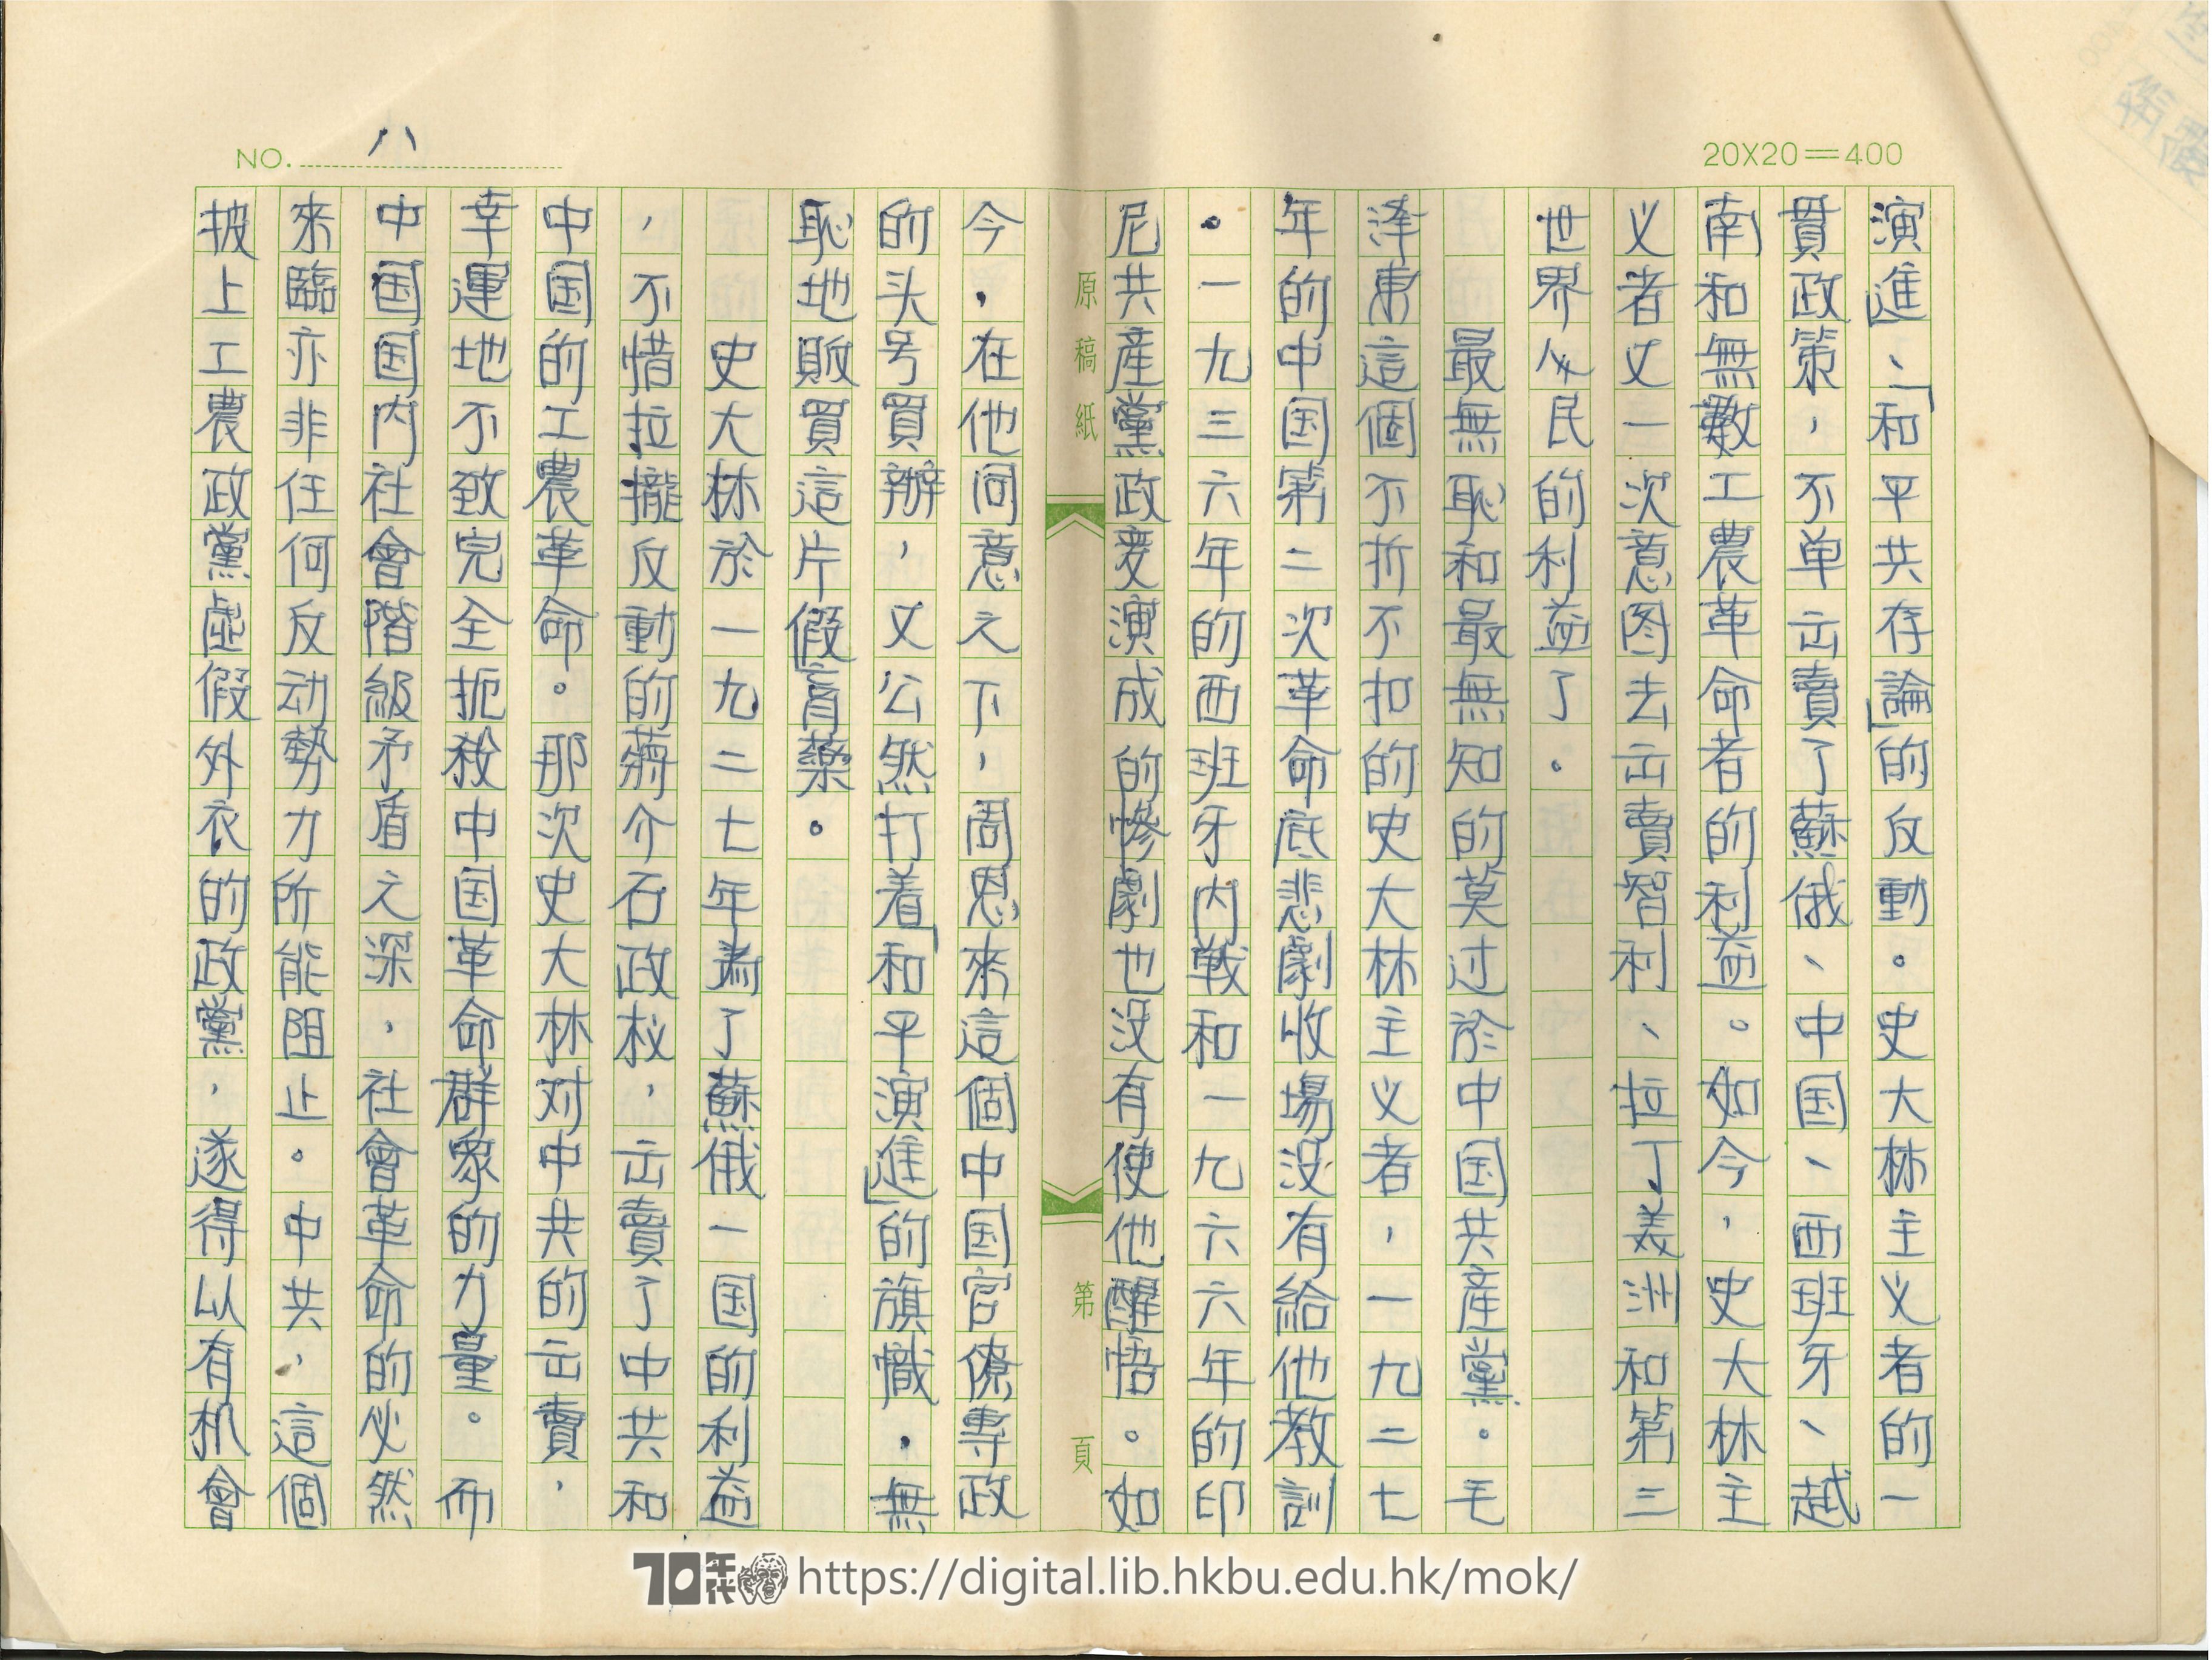 NO. 八
20X20=400
演進」、「和平共存論」的反動。史大林主义者的一
貫政策，不单出賣了蘇俄、中国、西班牙、越
南和無數工農革命者的利益。如今，史大林主
义者又一次意图去出賣智利、拉丁美洲和第三
世界人民的利益了。
最無恥和最無知的莫过於中国共產黨。毛
泽東這個不折不扣的史大林主义者，一九二七
年的中国第二次革命底悲劇收場没有給他教訓
。一九三六年的西班牙内戰和一九六六年的印
尼共產黨政变演成的慘劇也没有使他醒悟。如
原稿紙 第 頁
今，在他同意之下，周恩來這個中国官僚專政
的头号買辦，又公然打着「和平演進」的旗幟，無
恥地販買這片「假膏藥。
史大林於一九二七年为了蘇俄一国的利益
，不惜拉攏反動的蔣介石政权，出賣了中共和
中国的工農革命。那次史大林对中共的出賣，
幸運地不致完全扼殺中国革命群象的力量。而
中国国内社會階級矛盾之深，社會革命的必然
來臨亦非任何反动勢力所能阻止。中共，這個
披上工農政黨虛假外衣的政黨，遂得以有机會
70年代 https://digital.lib.hkbu.edu.hk/mok/